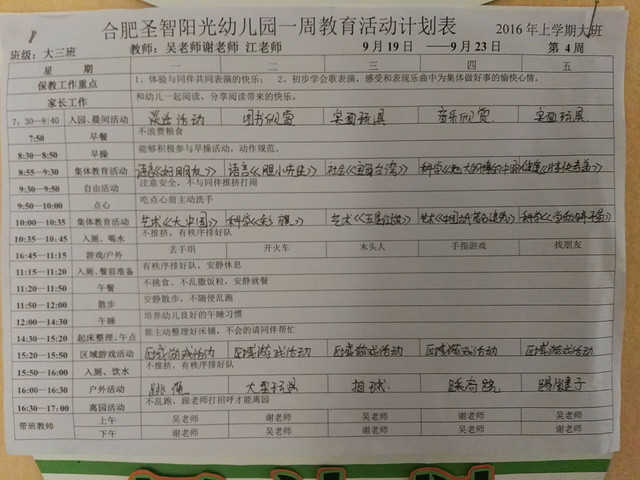 合肥圣智阳光幼儿园一周教育活动计划表 2016年上学期大班
班级：大三班 教师：吴老师谢老师 江老师 9月19日 ——9月23日 第4周
星 期 一 二 三 四 五
保教工作重点 1、体验与同伴共同表演的快乐； 2、初步学会歌表演，感受和表现乐曲中为集体做好事的愉快心情。
家长工作 和幼儿一起阅读，分享阅读带来的快乐。
7：30—8:40 入园、晨间活动 晨谈活动 图书欣赏 桌面玩具 音乐欣赏 桌面玩具
7:50 早餐 不浪费粮食
8:30—8:50 早操 能够积极参与早操活动，动作规范。
8:55—9:30 集体教育活动 语言《好朋友》 语言《胆小先生》 社会《宝岛台湾》 科学
9:30—9:50 自由活动 注意安全，不与同伴推挤打闹
9:50—10:00 点心 吃点心前主动洗手
10:00—10:35 集体教育活动 艺术《大中国》 科学《彩旗》 艺术《五星红旗》 艺术 科学
10:35—10:45 入厕、喝水 不推挤，有秩序排好队
16:45—11:15 游戏/户外 丢手绢 开火车 木头人 手指游戏 找朋友
11:15—11:20 入厕、餐前准备 有秩序排好队，安静休息
11:20—11:50 午餐 不挑食、不乱撒饭粒，安静就餐
11:50—12:00 散步 安静散步，不随便乱跑
12:00—14:30 午睡 培养幼儿良好的午睡习惯
14:30—15:20 起床整理、午点 能主动整理好床铺，不会的请同伴帮忙
15:20—15:50 区域游戏活动 区域游戏活动 区域游戏活动 区域游戏活动 区域游戏活动 区域游戏活动
15:50—16:00 入厕、饮水 不推挤，有秩序排好队
16:00—16:30 户外活动 跳绳 大型玩具 拍球 踩高跷 踢毽子
16:30—17:00 离园活动 不乱跑，跟老师打招呼才能离园
带班教师 上午 吴老师 谢老师 吴老师 谢老师 吴老师
下午 谢老师 吴老师 谢老师 吴老师 谢老师